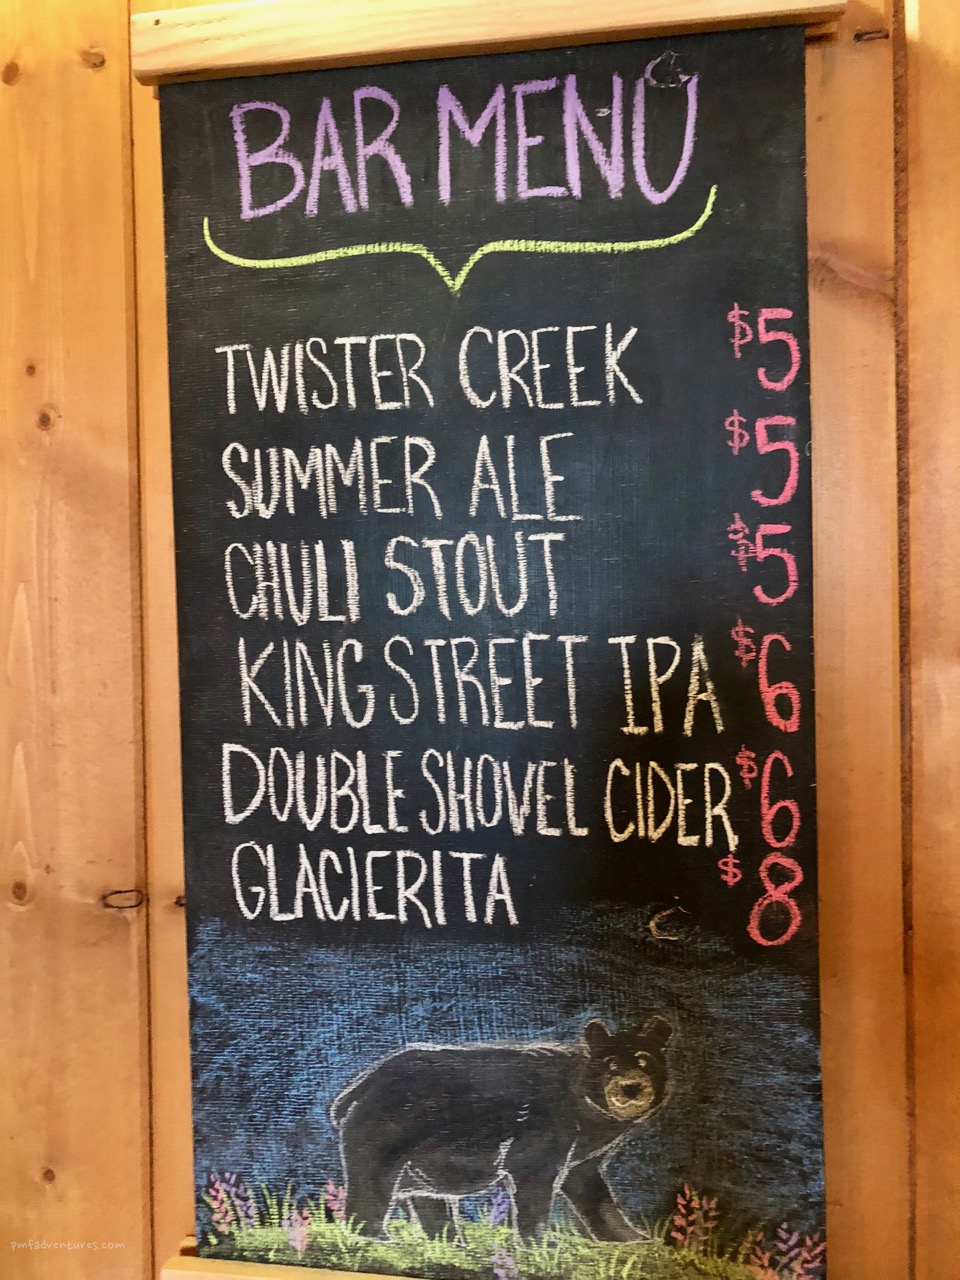 BAR MENU
TWISTER CREEK $5
SUMMER ALE $5
CHULI STOUT $5
KING STREET IPA $6
DOUBLE SHOVEL CIDER $6
GLACIERITA $8
pmfadventures.com